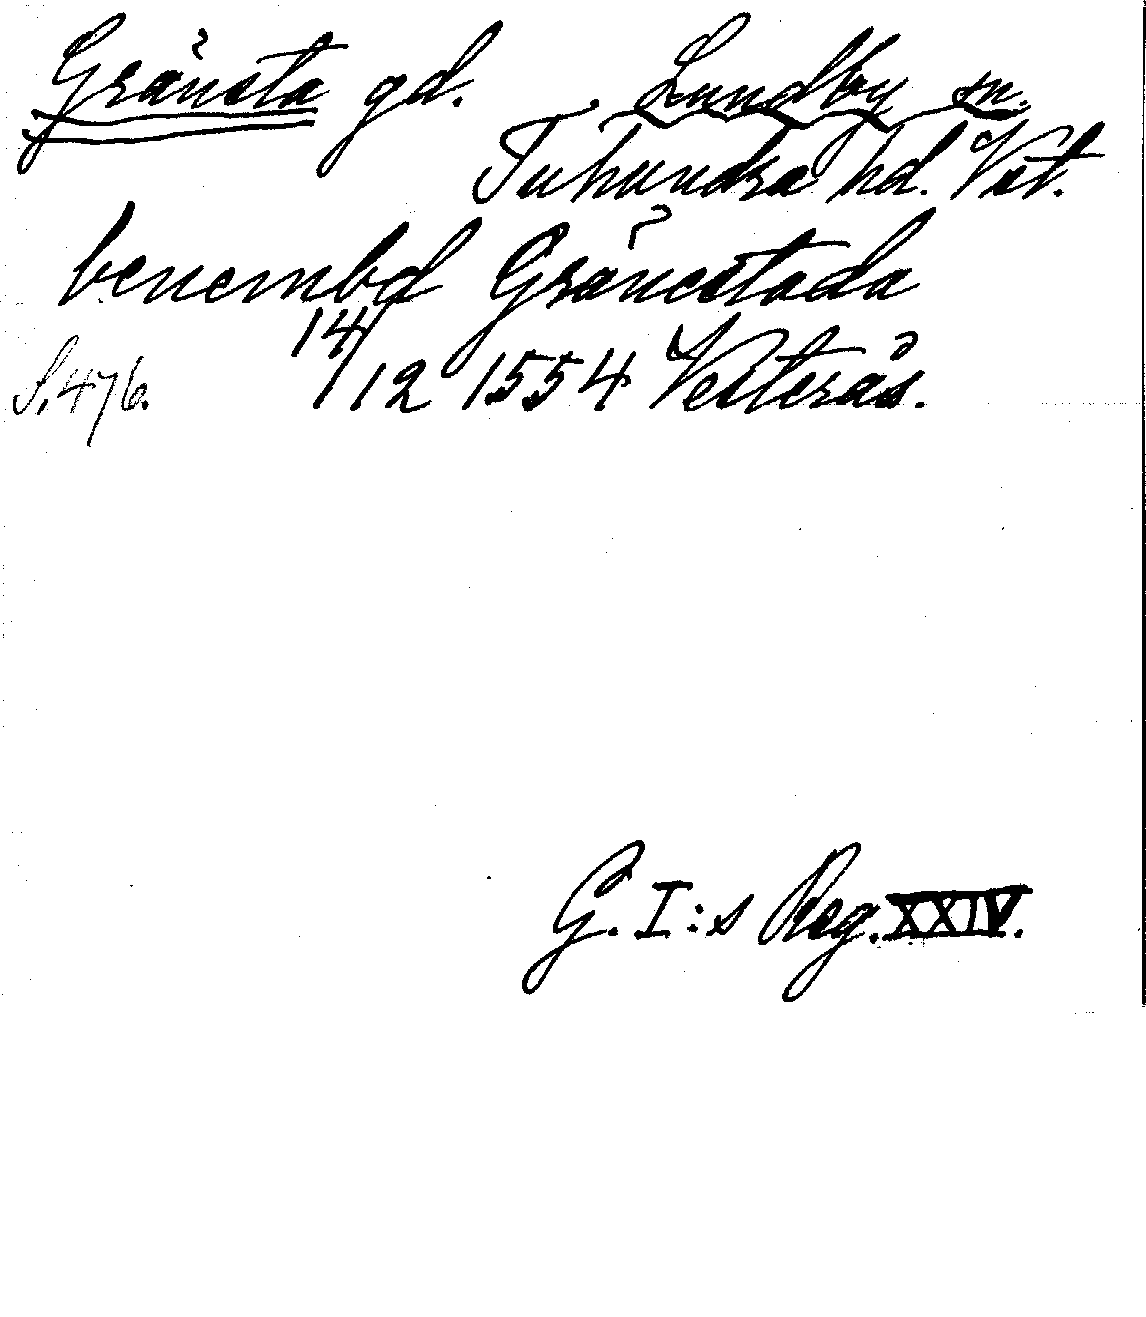 Gränsta gd. Lundby sn.
Tuhundra hd. Vst.
benembd Gränestada
S. 476. 14/12 1554 Vesterås.
G. I:s Reg. XXIV.